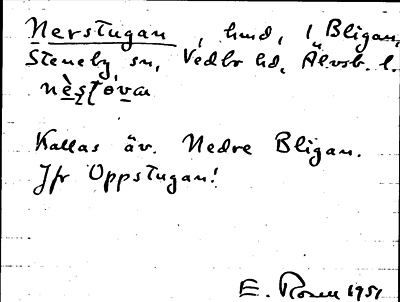 Nerstugan, hmd, 1 Bligan,
Steneby sn, Vedbo hd, Älvsb. l.
nè̱stova
Kallas äv. Nedre Bligan.
Jfr Oppstugan!
E. Rosen 1951